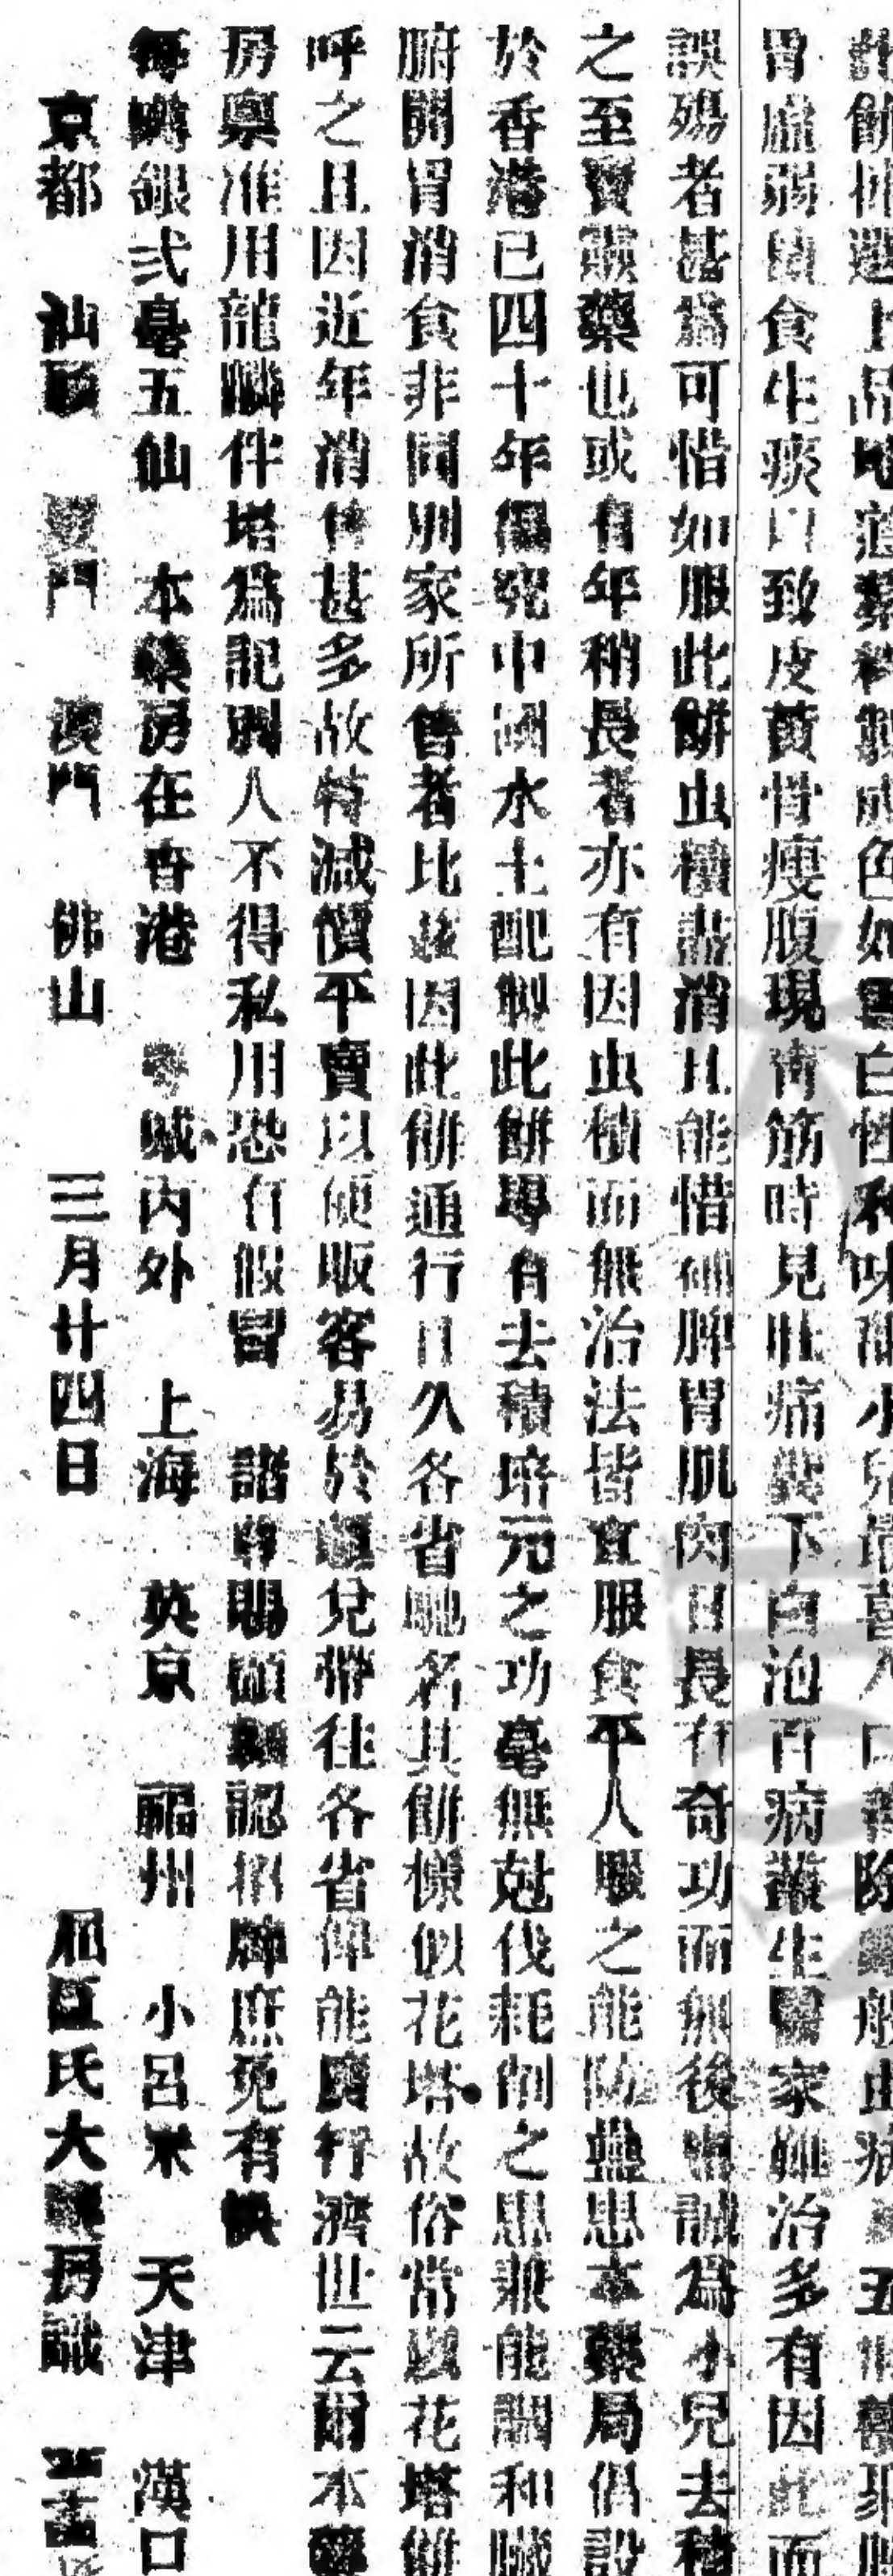 餅揀選上品地道藥料製成色如雪白性和味甜小兒最喜入口
胃虛弱積食生痰以致皮黃骨瘦腹現青筋時見肚痛糞下白泡百病叢生醫家難治多有因此而
誤殤者甚為可惜如服此餅虫積盡消且能惜補脾胃肌肉日長有奇功而無後患誠為小兒去積
之至寶靈藥也或有年稍長者亦有因虫積而無治法皆宜服食平人服之能防蠱患本藥局倡設
於香港已四十年偏究中國水土配製此餅專有去積培元之功毫無尅伐耗削之患兼能調和臟
腑開胃消食非同別家所售者比茲因此餅通行日久各省馳名其餅様似花塔故俗常號花塔餅
呼之且因近年消售甚多故特減價平賣以便販客易於躉兌帶往各省俾能廣行濟世云爾本藥
房稟准用龍麟伴塔為記別人不得私用恐有假冒 諸尊賜顧須認招牌庶免有悞
每噂銀弍毫五仙 本藥房在香港 粵城內外 上海 英京 福州 小呂宋 天津 漢口
京都 汕頭 廈門 澳門 佛山 三月廿四日 屈臣氏大藥房識